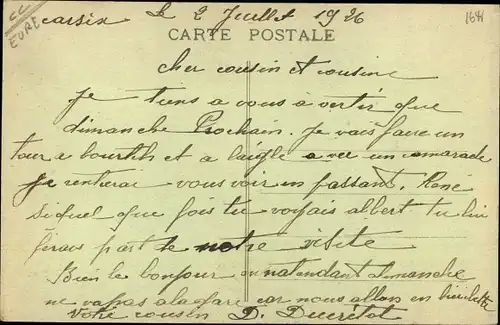 EURE
carsix le 2 Juillet 1926
1641
CARTE POSTALE
cher cousin et cousine
Je tiens a vous a vertir que
dimanche Prochain. Je vais faire un
tour a bourtih et a laigle a vec un camarade
Je rentierai vous voir en passant. René
si quel que fois tu voyais albert tu lui
ferais part de notre visite
Bien le bonjour en natendant dimanche
ne va pas a la gare car nous allon en biciclette
votre cousin D. Ducrétot